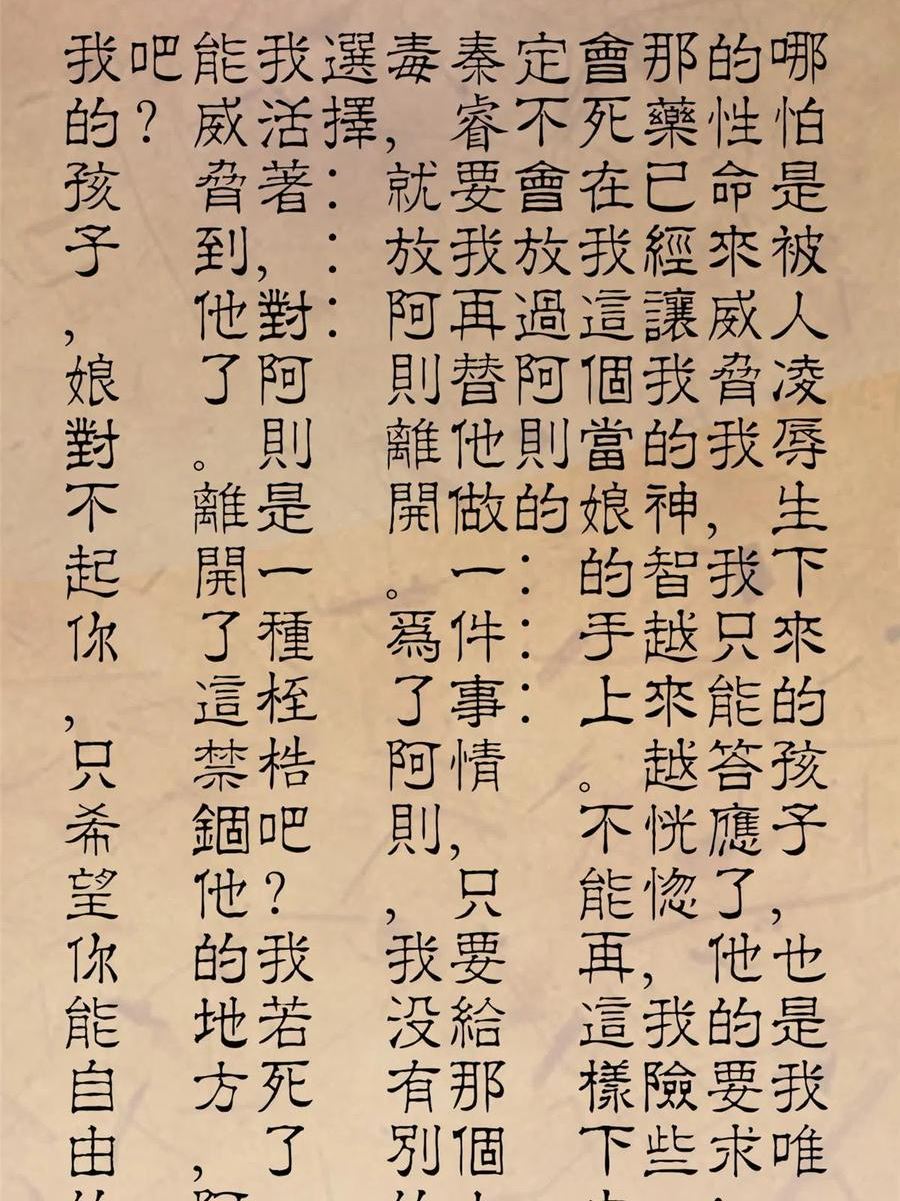 哪怕是被人凌辱生下來的孩子，也是我唯
的性命來威脅我，我只能答應了，他的要求
那藥已經讓我的神智越來越恍惚，我險些
會死在我這個當娘的手上。不能再這樣下
定不會放過阿則的：：：
秦睿要我再替他做一件事情，只要給那個
毒，就放阿則離開。爲了阿則，我没有別的
選擇：：：
我活著，對阿則是一種桎梏吧？我若死了
能威脅到他了。離開了這禁錮他的地方，阿
吧？
我的孩子，娘對不起你，只希望你能自由的